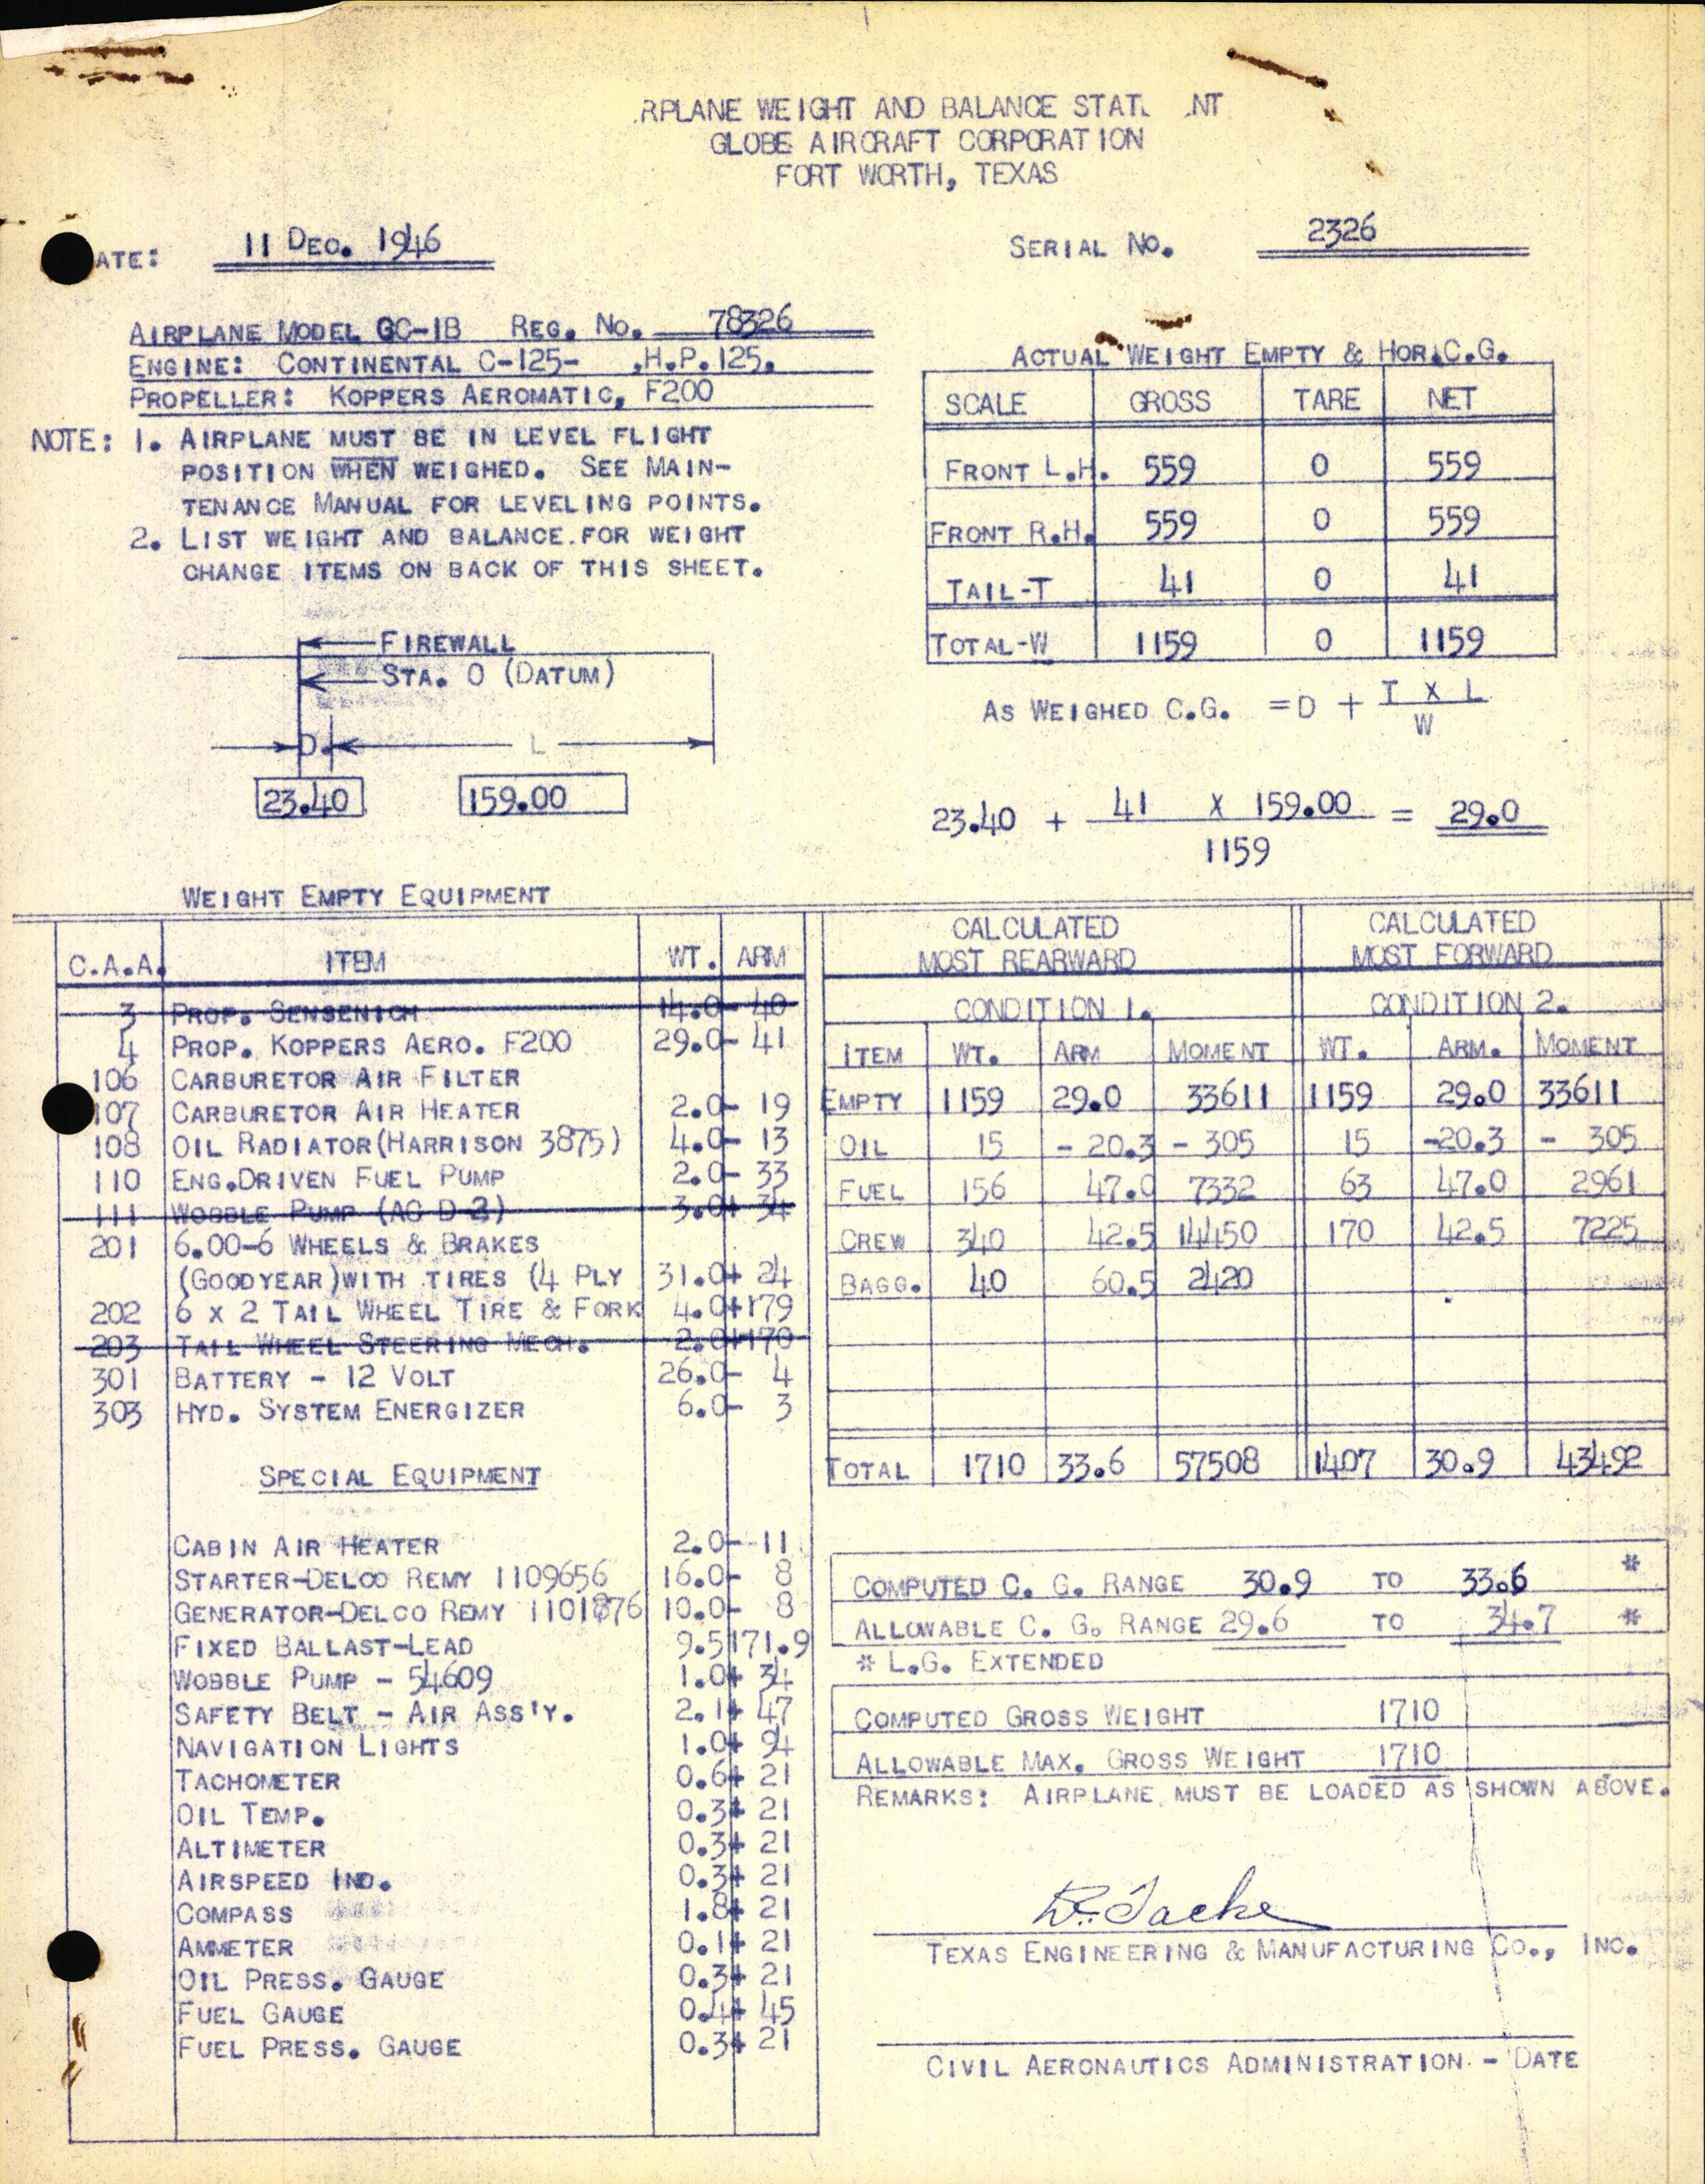 RPLANE WEIGHT AND BALANCE STAT NT
GLOBE AIRCRAFT CORPORATION
FORT WORTH, TEXAS
ATE: 11 DEC. 1946 SERIAL NO. 2326
AIRPLANE MODEL GC-1B REG. NO. 78326
ENGINE: CONTINENTAL C-125- .H.P.125.
PROPELLER: KOPPERS AEROMATIC, F200
NOTE: 1. AIRPLANE MUST BE IN LEVEL FLIGHT
POSITION WHEN WEIGHED. SEE MAIN-
TENANCE MANUAL FOR LEVELING POINTS.
2. LIST WEIGHT AND BALANCE.FOR WEIGHT
CHANGE ITEMS ON BACK OF THIS SHEET.
ACTUAL WEIGHT EMPTY & HOR.C.G.
SCALE GROSS TARE NET
FRONT L.H. 559 0 559
FRONT R.H. 559 0 559
TAIL-T 41 0 41
TOTAL-W 1159 0 1159
FIREWALL
STA. 0 (DATUM)
D. L
23.40 159.00
AS WEIGHED C.G. = D + T X L
W
23.40 + 41 X 159.00 = 29.0
1159
WEIGHT EMPTY EQUIPMENT
C.A.A. ITEM WT. ARM
3 PROP. SENSENICH 14.0- 40
4 PROP. KOPPERS AERO. F200 29.0- 41
106 CARBURETOR AIR FILTER
107 CARBURETOR AIR HEATER 2.0- 19
108 OIL RADIATOR(HARRISON 3875) 4.0- 13
110 ENG.DRIVEN FUEL PUMP 2.0- 33
111 WOBBLE PUMP (AC D-2) 3.0+ 34
201 6.00-6 WHEELS & BRAKES
(GOODYEAR)WITH TIRES (4 PLY 31.0+ 24
202 6 X 2 TAIL WHEEL TIRE & FORK 4.0+179
203 TAIL WHEEL STEERING MECH. 2.0+170
301 BATTERY - 12 VOLT 26.0- 4
303 HYD. SYSTEM ENERGIZER 6.0- 3
SPECIAL EQUIPMENT
CABIN AIR HEATER 2.0- -11
STARTER-DELCO REMY 1109656 16.0- 8
GENERATOR-DELCO REMY 1101876 10.0- 8
FIXED BALLAST-LEAD 9.5 171.9
WOBBLE PUMP - 54609 1.0+ 34
SAFETY BELT - AIR ASS'Y. 2.1+ 47
NAVIGATION LIGHTS 1.0+ 94
TACHOMETER 0.6+ 21
OIL TEMP. 0.3+ 21
ALTIMETER 0.3+ 21
AIRSPEED IND. 0.3+ 21
COMPASS 1.8+ 21
AMMETER 0.1+ 21
OIL PRESS. GAUGE 0.3+ 21
FUEL GAUGE 0.4+ 45
FUEL PRESS. GAUGE 0.3+ 21
CALCULATED CALCULATED
MOST REARWARD MOST FORWARD
CONDITION 1. CONDITION 2.
ITEM WT. ARM MOMENT WT. ARM. MOMENT
EMPTY 1159 29.0 33611 1159 29.0 33611
OIL 15 - 20.3 - 305 15 -20.3 - 305
FUEL 156 47.0 7332 63 47.0 2961
CREW 340 42.5 14450 170 42.5 7225
BAGG. 40 60.5 2420
TOTAL 1710 33.6 57508 1407 30.9 43492
COMPUTED C. G. RANGE 30.9 TO 33.6 *
ALLOWABLE C. G. RANGE 29.6 TO 34.7 *
* L.G. EXTENDED
COMPUTED GROSS WEIGHT 1710
ALLOWABLE MAX. GROSS WEIGHT 1710
REMARKS: AIRPLANE MUST BE LOADED AS SHOWN ABOVE.
TEXAS ENGINEERING & MANUFACTURING CO., INC.
CIVIL AERONAUTICS ADMINISTRATION - DATE